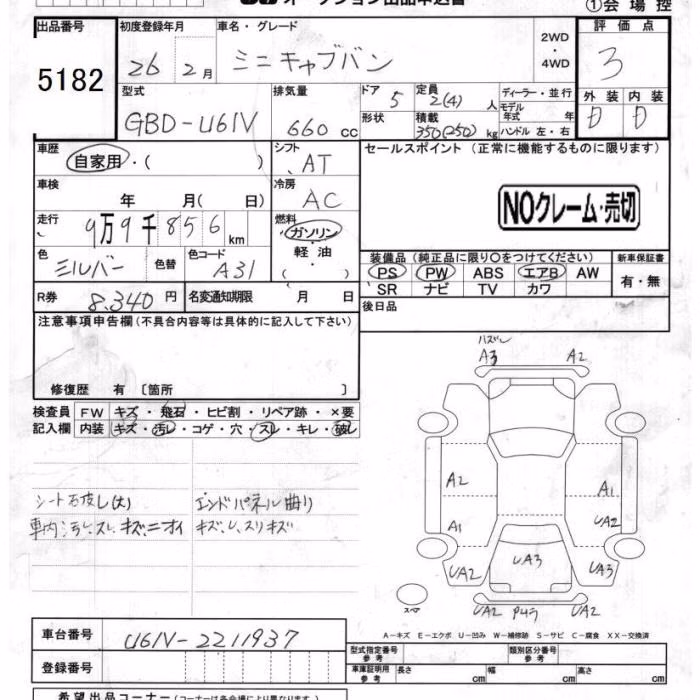 オークション出品申込書
①会場控
出品番号 5182
初度登録年月 26年 2月
車名・グレード ミニキャブバン
2WD・4WD
評価点 3
型式 GBD-U61V
排気量 660cc
ドア 5
形状
定員 2(4)人
積載 350(250)kg
ディーラー・並行
モデル年式 年
ハンドル 左・右
外装 D
内装 D
車歴 自家用・( )
シフト AT
車検 年 月( 日)
冷房 AC
走行 9万9千856km
燃料 ガソリン・軽油・( )
色 シルバー
色替
色コード A31
R券 8,340円
名変通知期限 月 日
セールスポイント(正常に機能するものに限ります)
NOクレーム・売切
装備品(純正品に限り○をつけてください)
新車保証書
PS PW ABS エアB AW
有・無
SR ナビ TV カワ
後日品
注意事項申告欄(不具合内容等は具体的に記入して下さい)
修復歴 有〔箇所 〕
検査員記入欄
FW キズ・飛石・ヒビ割・リペア跡・×要
内装 キズ・汚レ・コゲ・穴・スレ・キレ・破レ
シート破レ(大)
エンドパネル曲り
車内汚レ、スレ、キズ、ニオイ
キズ、U、スリキズ
A3 A2
A2 A1
A1 UA2
UA2 UA3 UA2
UA2 UA2
スペア
A-キズ E-エクボ U-凹み W-補修跡 S-サビ C-腐食 XX-交換済
車台番号 U61V-2211937
登録番号
型式指定番号 参考
類別区分番号 参考
車庫証明用 参考 長さ cm 幅 cm 高さ cm
希望出品コーナー(コーナーは各会場により異なります)